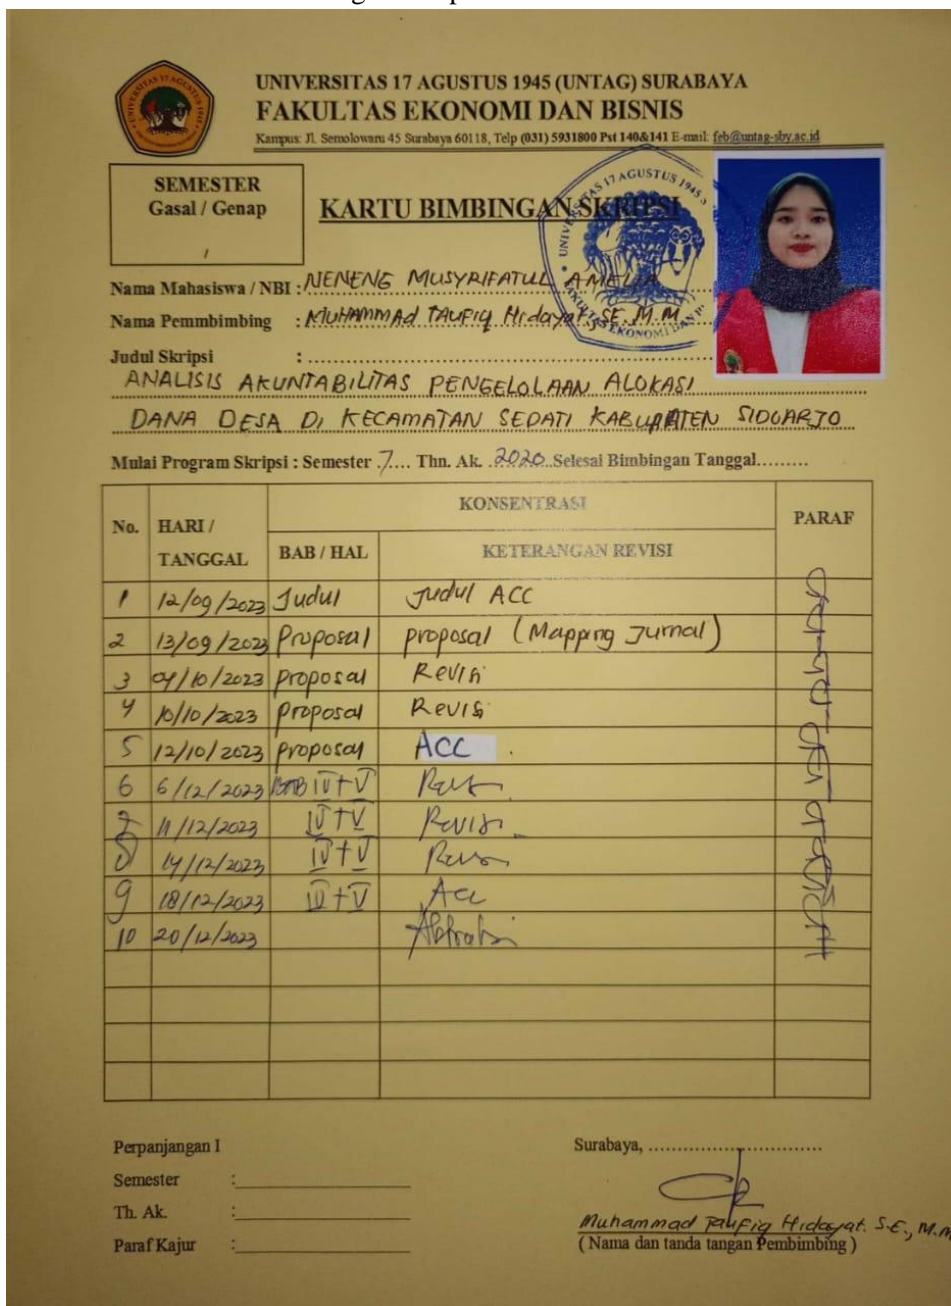 UNIVERSITAS 17 AGUSTUS 1945 (UNTAG) SURABAYA
FAKULTAS EKONOMI DAN BISNIS
Kampus: Jl. Semolowaru 45 Surabaya 60118, Telp (031) 5931800 Pst 140&141 E-mail: feb@untag-sby.ac.id
SEMESTER
Gasal / Genap
/
KARTU BIMBINGAN SKRIPSI
Nama Mahasiswa / NBI : NENENG MUSYRIFATUL AMELIA
Nama Pemmbimbing : MUHAMMAD TAUFIQ Hidayat, SE, M.M.
Judul Skripsi :
ANALISIS AKUNTABILITAS PENGELOLAAN ALOKASI
DANA DESA DI KECAMATAN SEDATI KABUPATEN SIDOARJO
Mulai Program Skripsi : Semester .7.... Thn. Ak. .2020..Selesai Bimbingan Tanggal.........
No. HARI / TANGGAL KONSENTRASI PARAF
BAB / HAL KETERANGAN REVISI
1 12/09/2023 Judul Judul ACC
2 13/09/2023 Proposal proposal (Mapping Jurnal)
3 04/10/2023 proposal Revisi
4 10/10/2023 proposal Revisi
5 12/10/2023 proposal ACC .
6 6/12/2023 BAB IV+V Revisi
7 11/12/2023 IV+V Revisi
8 14/12/2023 IV+V Revisi
9 18/12/2023 IV+V Acc
10 20/12/2023
Perpanjangan I
Surabaya, ..............................
Semester :
Th. Ak. :
Paraf Kajur :
Muhammad Taufiq Hidayat. S.E., M.M
( Nama dan tanda tangan Pembimbing )